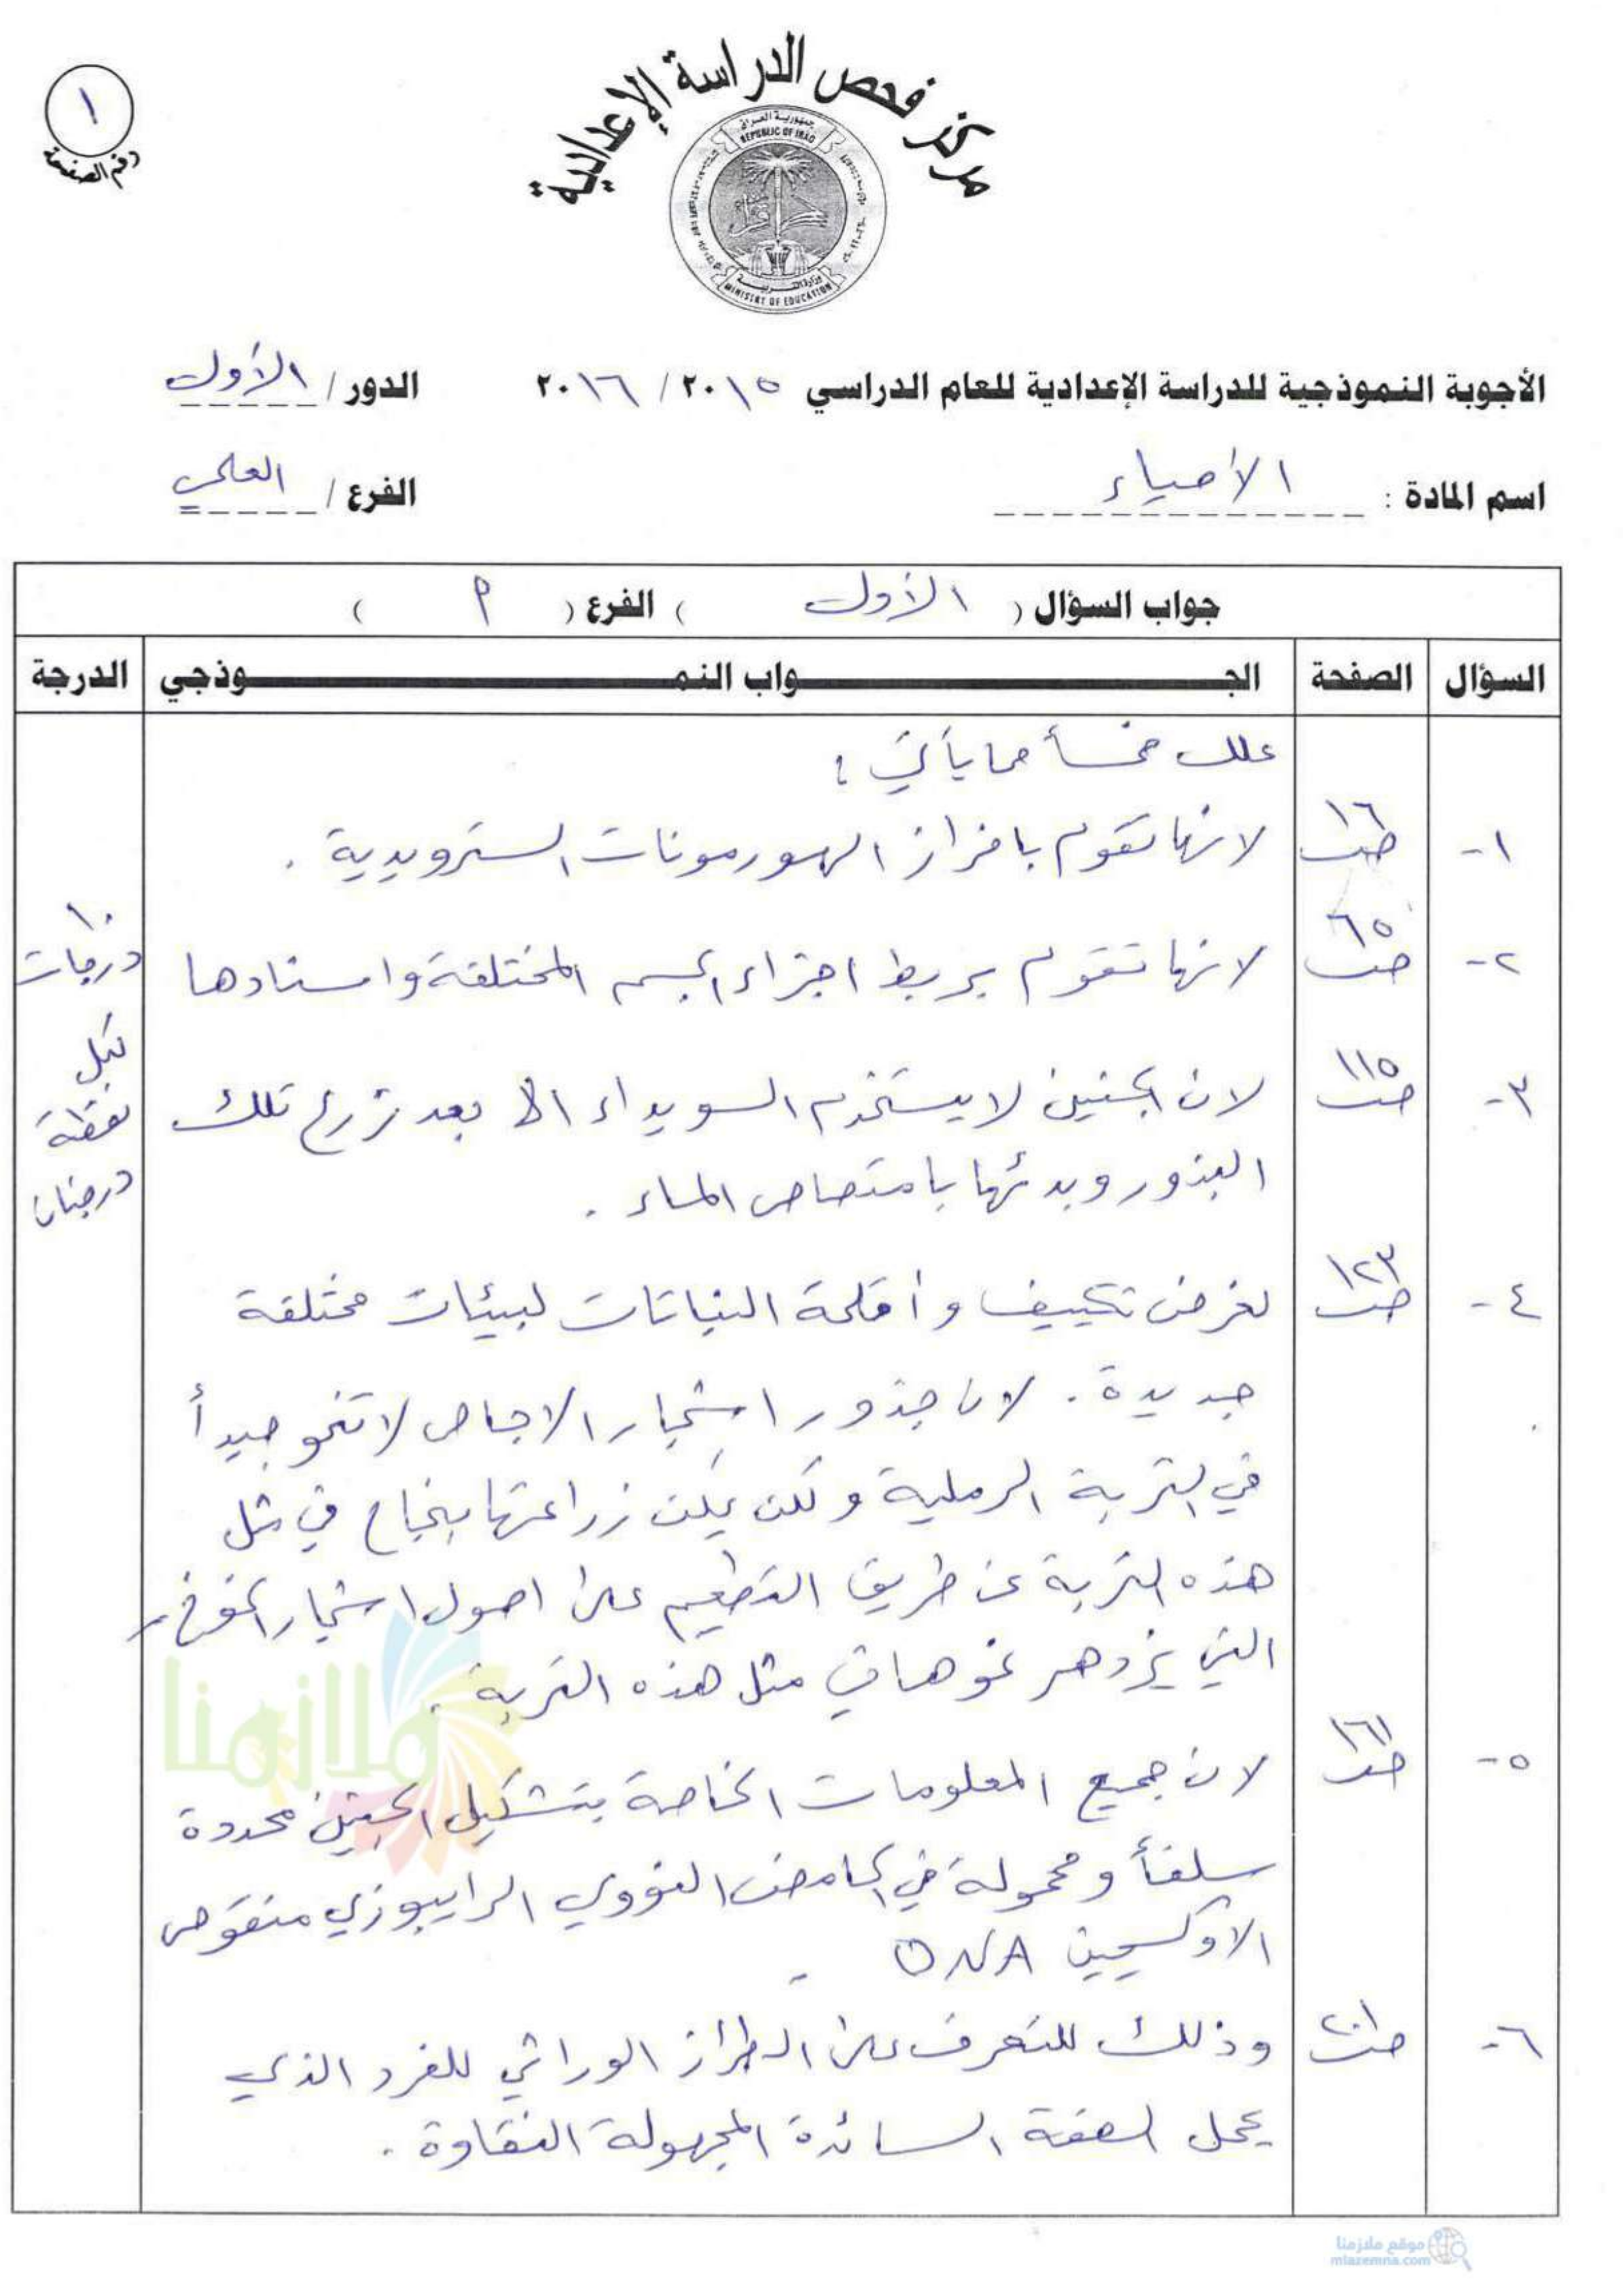 ١
رقم الصفحة
مركز فحص الدراسة الإعدادية
جمهورية العراق
REPUBLIC OF IRAQ
وزارة التربية
MINISTRY OF EDUCATION
الأجوبة النموذجية للدراسة الإعدادية للعام الدراسي ٢٠١٥ / ٢٠١٦ الدور / الأول
اسم المادة : الأحياء الفرع / العلمي
جواب السؤال ( الأول ) الفرع ( م )
السؤال الصفحة الجـواب النمـوذجي الدرجة
علل خمساً مما يأتي :
١- ص١٦ لانها تقوم بافراز الهورمونات السترويدية .
٢- ص٦٥ لانها تقوم بربط اجزاء الجسم المختلفة واسنادها
٣- ص١١٥ لان الجنين لا يستخدم السويداء الا بعد زرع تلك
البذور وبدئها بامتصاص الماء .
١٠ درجات
لكل
نقطة
درجتان
٤- ص١٢٣ لغرض تكييف وأقلمة النباتات لبيئات مختلفة
جديدة . لان جذور اشجار الاجاص لا تنمو جيداً
في التربة الرملية ولكن يمكن زراعتها بنجاح في مثل
هذه التربة عن طريق التطعيم على اصول اشجار الخوخ
التي يزدهر نموها في مثل هذه التربة .
٥- ص١٦١ لان جميع المعلومات الخاصة بتشكيل الجنين محددة
سلفاً ومحمولة في الحامض النووي الرايبوزي منقوص
الاوكسجين DNA .
٦- ص٢٠١ وذلك للتعرف على الطراز الوراثي للفرد الذي
يحمل الصفة السائدة المجهولة النقاوة .
ملازمنا
موقع ملازمنا
mlazemna.com